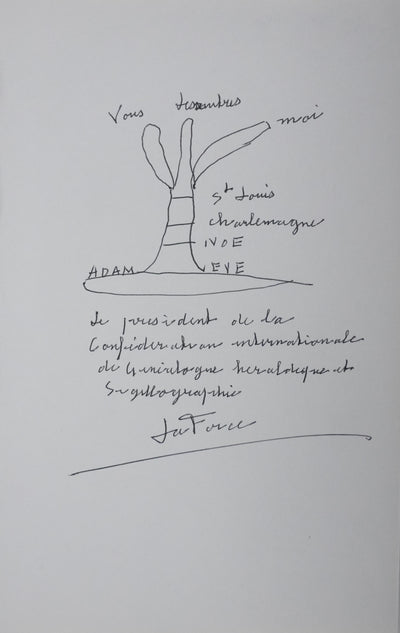 Vous les autres moi
St Louis
Charlemagne
NOE
ADAM EVE
Le president de la
Confédération internationale
de Généalogie heraldique et
Sigillographie
La Force